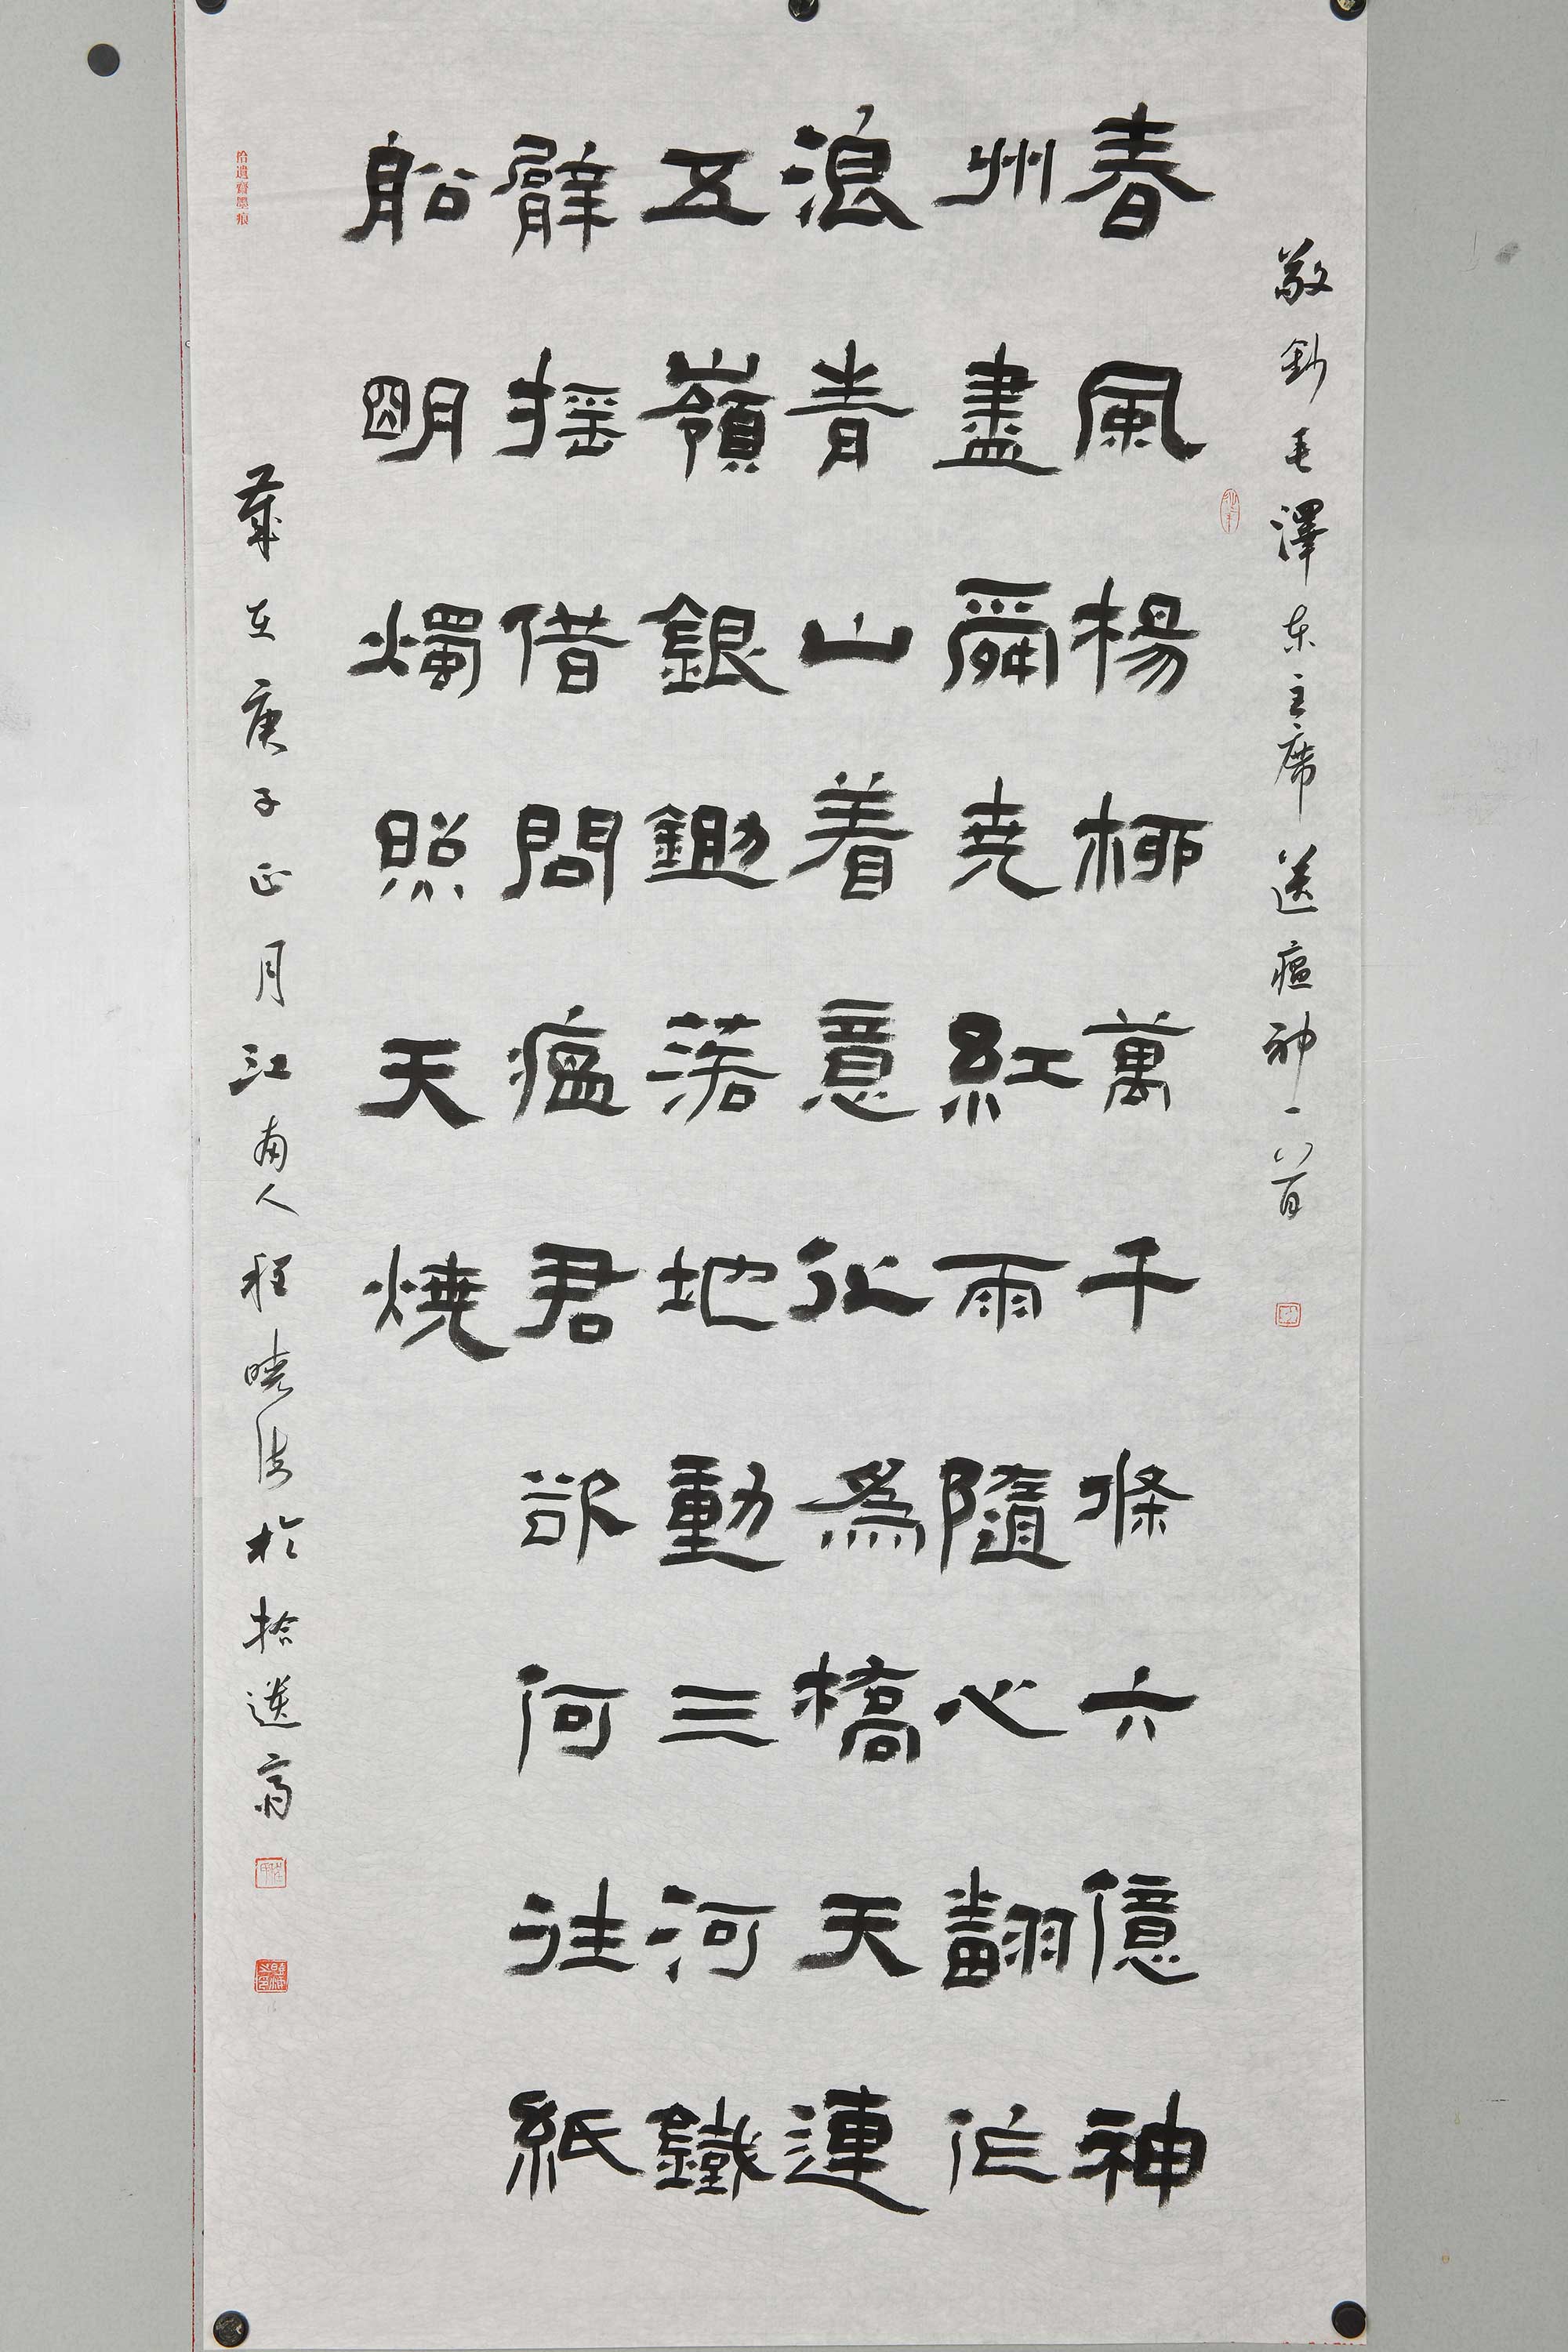 敬鈔毛澤东主席送瘟神一首
春風楊柳萬千條六億神
州盡舜堯紅雨隨心翻作
浪青山着意化為橋天連
五嶺銀鋤落地動三河鐵
臂摇借問瘟君欲何往紙
船明燭照天燒
歲在庚子正月江南人程曉法於拾遺齋
拾遺齋墨痕